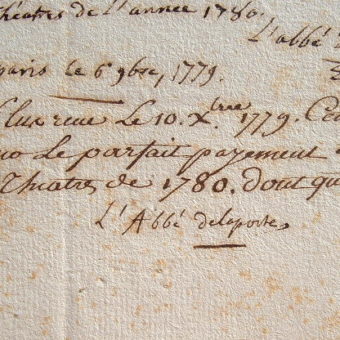 Théatres de l'année 1780.
L'abbé
paris le 6 9bre, 1779.
Plus recu Le 10. X.bre 1779. Cen
Le parfait payement
Théatre de 1780. dont qu
L'Abbé delaporte